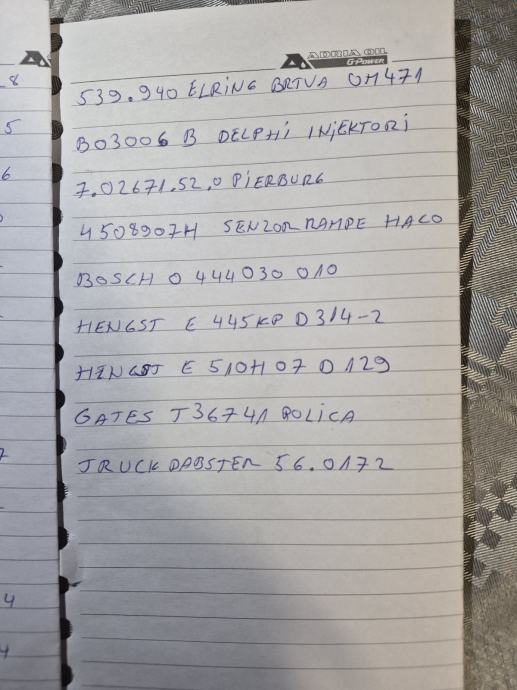 8
5
6
4
4
ADRIA OIL
G-POWER
539.940 ELRING BRTVA OM471
B03006 B DELPHI INJEKTORI
7.02671.52.0 PIERBURG
4508907H SENZOR RAMPE HACO
BOSCH 0 444 030 010
HENGST E 445KP D314-2
HENGST E 510H07 D129
GATES T36741 POLICA
TRUCK DABSTER 56.0172